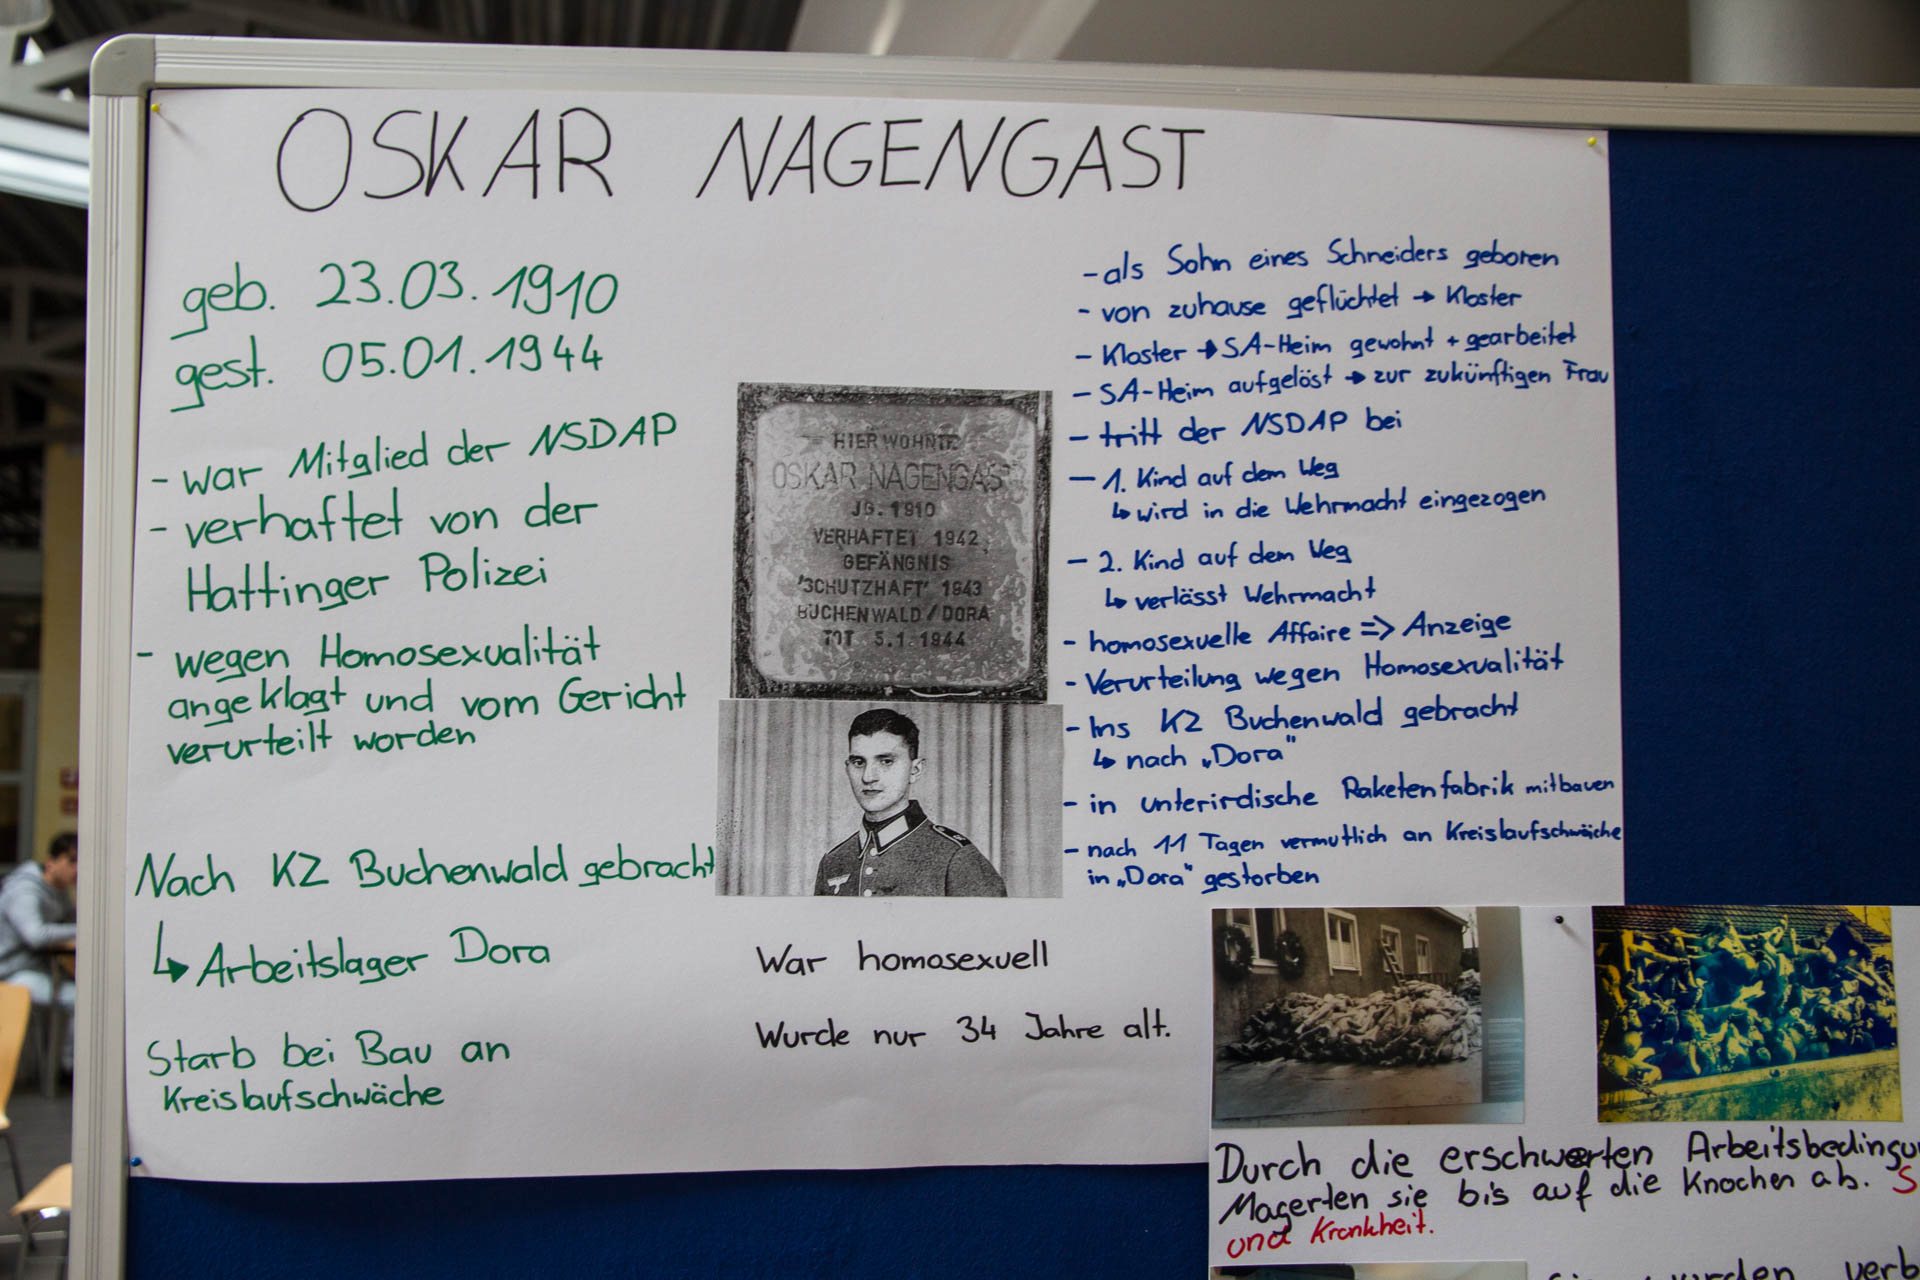 OSKAR NAGENGAST
geb. 23.03.1910
gest. 05.01.1944
- war Mitglied der NSDAP
- verhaftet von der
Hattinger Polizei
- wegen Homosexualität
angeklagt und vom Gericht
verurteilt worden
Nach KZ Buchenwald gebracht
↳ Arbeitslager Dora
Starb bei Bau an
Kreislaufschwäche
HIER WOHNTE
OSKAR NAGENGAST
JG. 1910
VERHAFTET 1942
GEFÄNGNIS
'SCHUTZHAFT' 1943
BUCHENWALD / DORA
TOT 5.1.1944
War homosexuell
Wurde nur 34 Jahre alt.
- als Sohn eines Schneiders geboren
- von zuhause geflüchtet → Kloster
- Kloster → SA-Heim gewohnt + gearbeitet
- SA-Heim aufgelöst → zur zukünftigen Frau
- tritt der NSDAP bei
- 1. Kind auf dem Weg
↳ wird in die Wehrmacht eingezogen
- 2. Kind auf dem Weg
↳ verlässt Wehrmacht
- homosexuelle Affaire => Anzeige
- Verurteilung wegen Homosexualität
- Ins KZ Buchenwald gebracht
↳ nach „Dora"
- in unterirdische Raketenfabrik mitbauen
- nach 11 Tagen vermutlich an Kreislaufschwäche
in „Dora" gestorben
Durch die erschwerten Arbeitsbedingu
Magerten sie bis auf die Knochen ab. S
und Krankheit.
verb